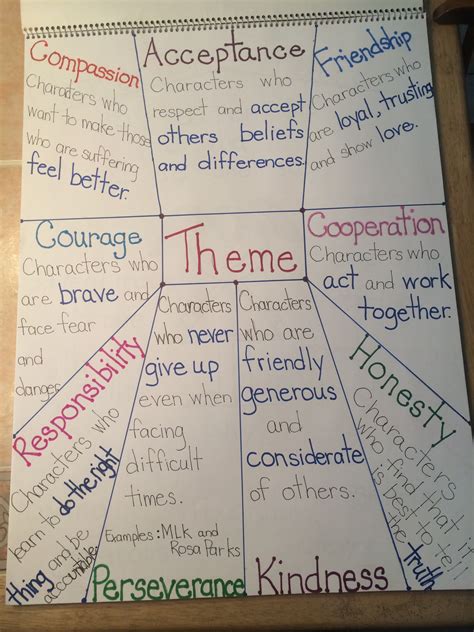 Compassion
Characters who
want to make those
who are suffering
feel better.
Acceptance
Characters who
respect and accept
others beliefs
and differences.
Friendship
Characters who
are loyal, trusting
and show love.
Courage
Characters who
are brave and
face fear
and
danger
Theme
Cooperation
Characters who
act and work
together.
Responsibility
Characters who
learn to do the right
thing and be
accountable
Characters
who never
give up
even when
facing
difficult
times.
Examples: MLK and
Rosa Parks
Perseverance
Characters
who are
friendly
generous
and
considerate
of others.
Kindness
Honesty
Characters
who find that it
is best to tell
the truth